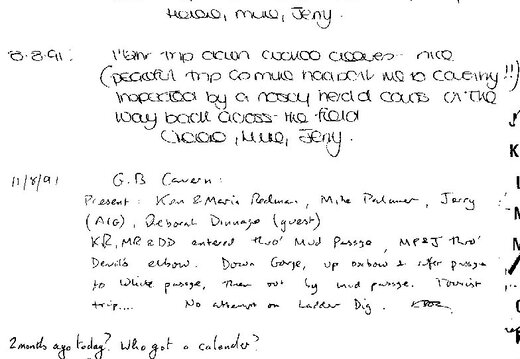 Mike, Jerry.
8.8.91: trip down Cuckoo Cleeves - nice
(peaceful trip so Mike hadn't to caving!!)
Inspected by a nosey herd of cows on the
way back across the field
Mike, Jerry.
11/8/91 G.B Cavern:
Present: Ken & Maria Redman, Mike Palmer, Jerry
(AIG), Deborah Dinnage (guest)
KR, MR & DD entered thro' Mud Passge, MP & J thro'
Devils elbow. Down Gorge, up oxbow & upper passge
to White passge, then out by mud passge. Tourist
trip.... No attempt on Ladder Dig.
2 months ago today? Who got a calander?